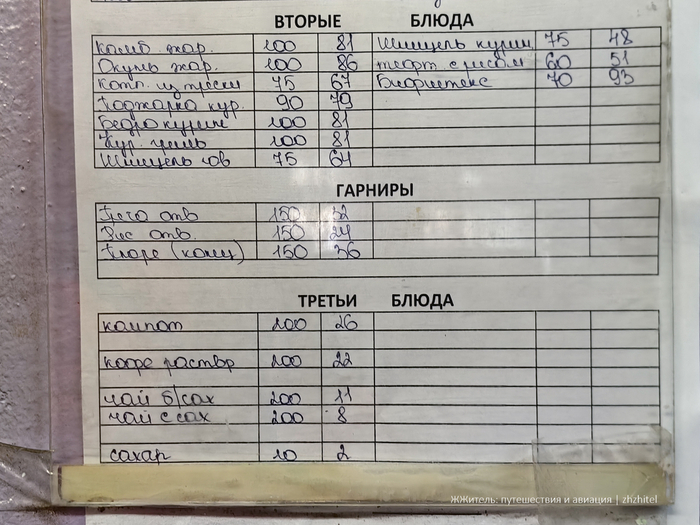 ВТОРЫЕ БЛЮДА
Камб. жар. 100 81 Шницель курин 75 48
Окунь жар. 100 86 тефт. с рисом 60 51
Котл. из трески 75 67 Бифштекс 70 93
Поджарка кур. 90 79
Бедро курин 100 81
Кур. гриль 100 81
Шницель гов 75 64
ГАРНИРЫ
отв 150 32
Рис отв. 150 24
Пюре 150 36
ТРЕТЬИ БЛЮДА
компот 200 26
кофе раствр 200 22
чай б/сах 200 11
чай с сах 200 8
сахар 10 2
ЖЖитель: путешествия и авиация | zhzhitel